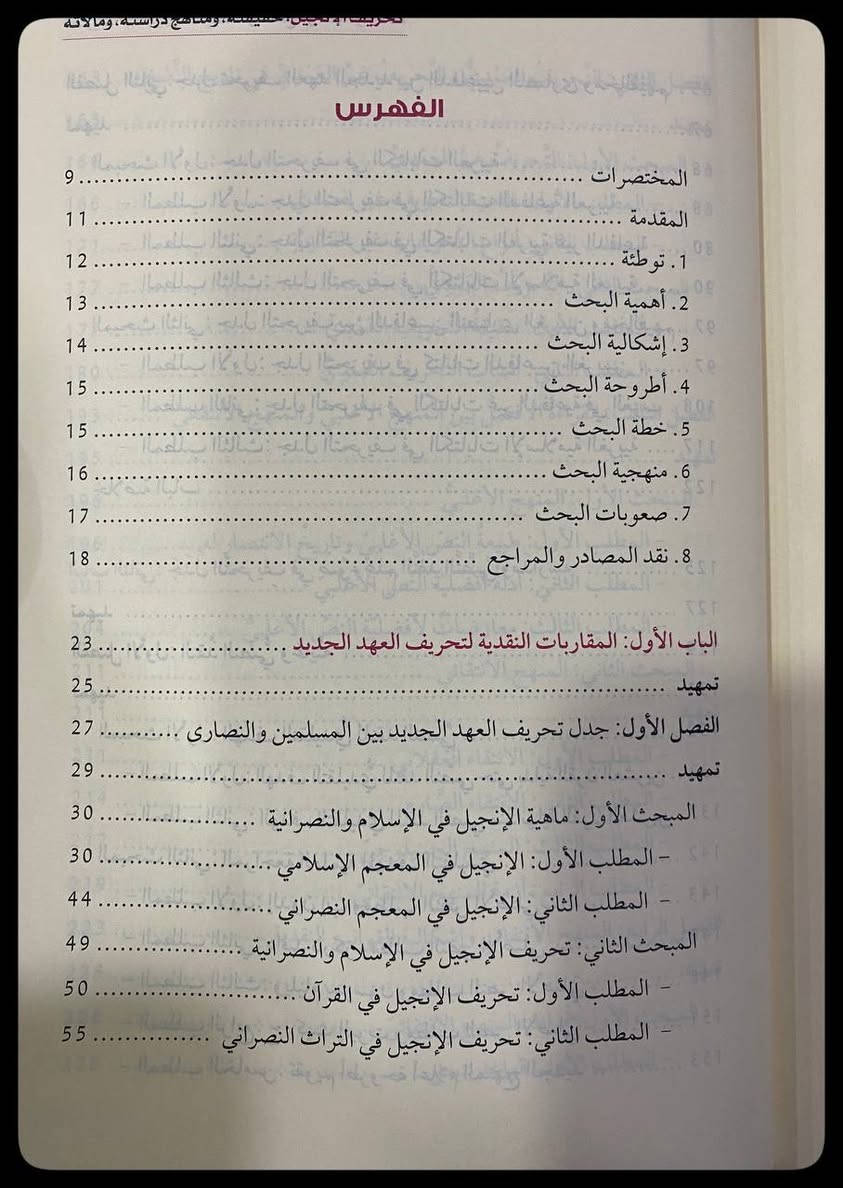 تحريف الإنجيل: حقيقته، ومناهج دراسته، ومآلاته
الفهرس
المختصرات ........ 9
المقدمة ........ 11
1. توطئة ........ 12
2. أهمية البحث ........ 13
3. إشكالية البحث ........ 14
4. أطروحة البحث ........ 15
5. خطة البحث ........ 15
6. منهجية البحث ........ 16
7. صعوبات البحث ........ 17
8. نقد المصادر والمراجع ........ 18
الباب الأول: المقاربات النقدية لتحريف العهد الجديد ........ 23
تمهيد ........ 25
الفصل الأول: جدل تحريف العهد الجديد بين المسلمين والنصارى ........ 27
تمهيد ........ 29
المبحث الأول: ماهية الإنجيل في الإسلام والنصرانية ........ 30
- المطلب الأول: الإنجيل في المعجم الإسلامي ........ 30
- المطلب الثاني: الإنجيل في المعجم النصراني ........ 44
المبحث الثاني: تحريف الإنجيل في الإسلام والنصرانية ........ 49
- المطلب الأول: تحريف الإنجيل في القرآن ........ 50
- المطلب الثاني: تحريف الإنجيل في التراث النصراني ........ 55